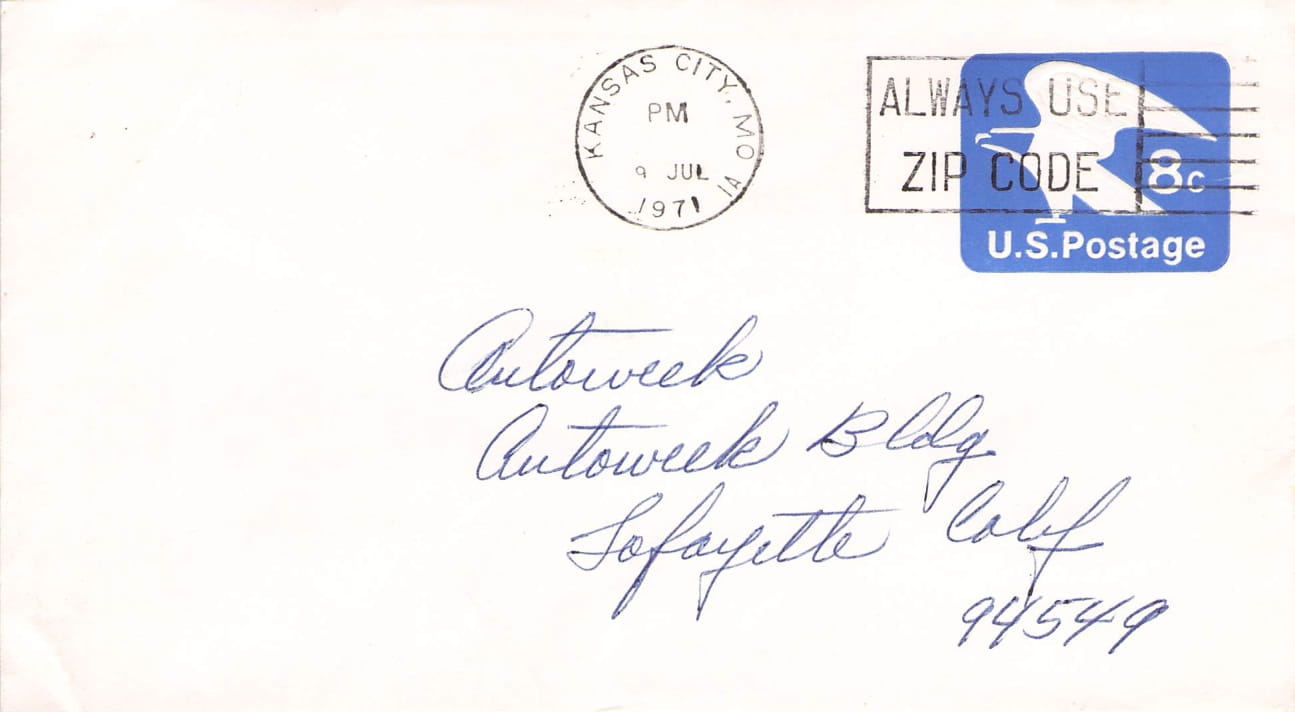 KANSAS CITY, MO
PM
9 JUL
1971
1A
ALWAYS USE
ZIP CODE
8c
U.S.Postage
Autoweek
Autoweek Bldg
Lafayette Calif
94549